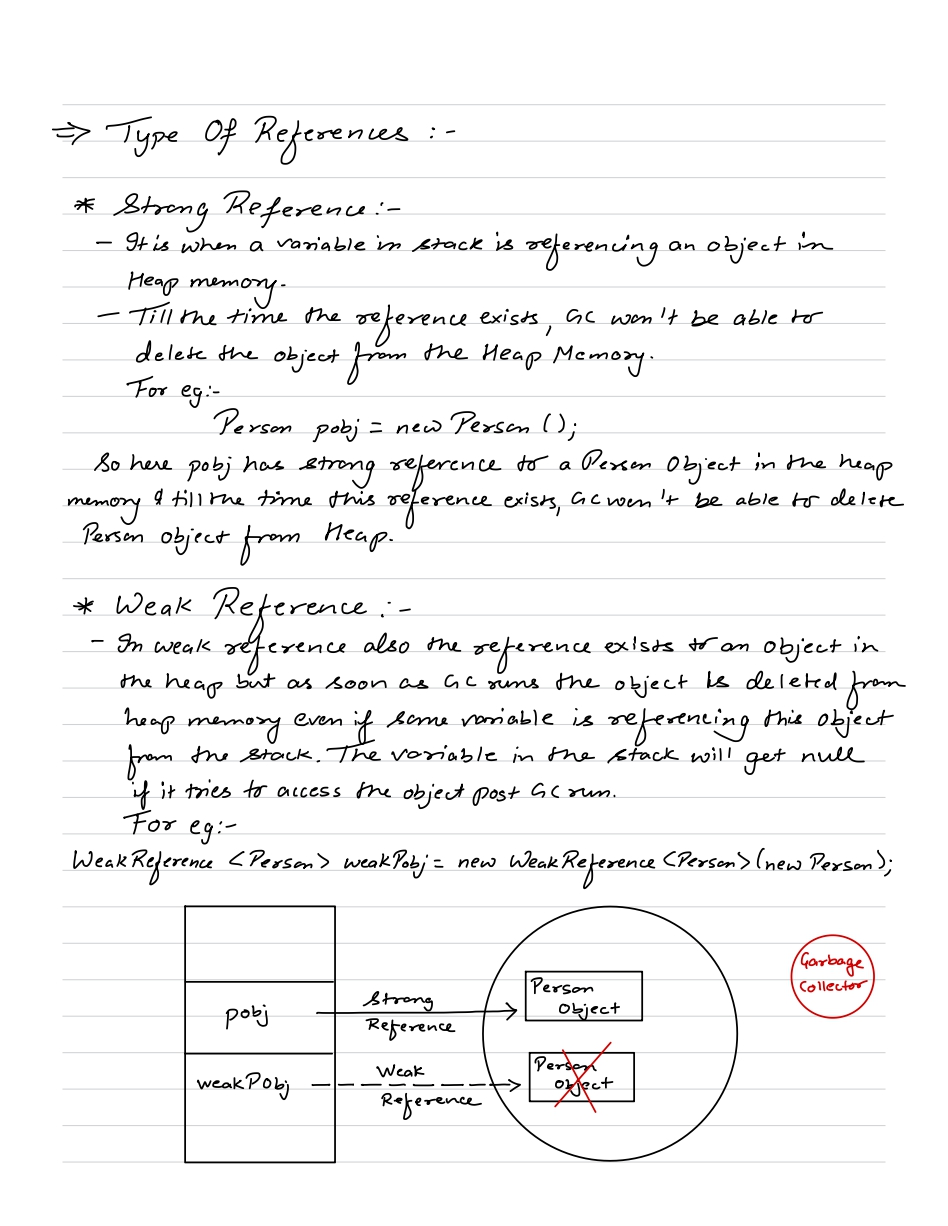 ⇒ Type Of References :-
* Strong Reference :-
- It is when a variable in stack is referencing an object in
Heap memory.
- Till the time the reference exists, GC won't be able to
delete the object from the Heap Memory.
For eg:-
Person pobj = new Person ();
So here pobj has strong reference to a Person Object in the heap
memory & till the time this reference exists, GC won't be able to delete
Person object from Heap.
* Weak Reference :-
- In weak reference also the reference exists to an object in
the heap but as soon as GC runs the object is deleted from
heap memory even if some variable is referencing this object
from the stack. The variable in the stack will get null
if it tries to access the object post GC run.
For eg:-
WeakReference <Person> weakPobj = new WeakReference <Person> (new Person);
Garbage
Collector
Person
Object
pobj
Strong
Reference
weakPObj
Weak
Reference
Person
Object